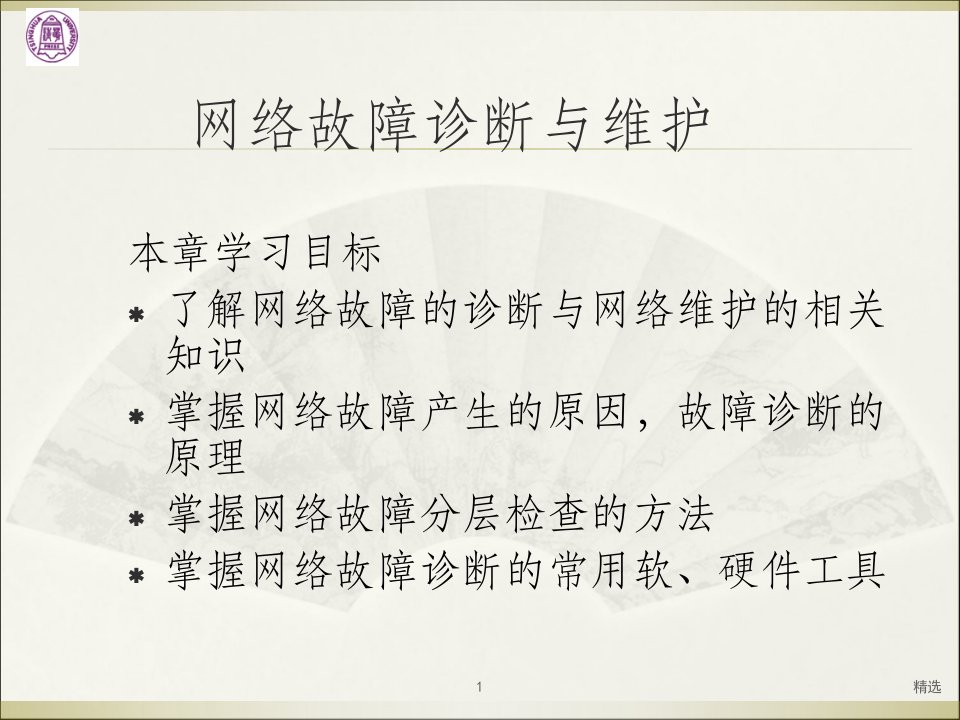 TSINGHUA UNIVERSITY
PRESS
网络故障诊断与维护
本章学习目标
了解网络故障的诊断与网络维护的相关
知识
掌握网络故障产生的原因，故障诊断的
原理
掌握网络故障分层检查的方法
掌握网络故障诊断的常用软、硬件工具
1
精选